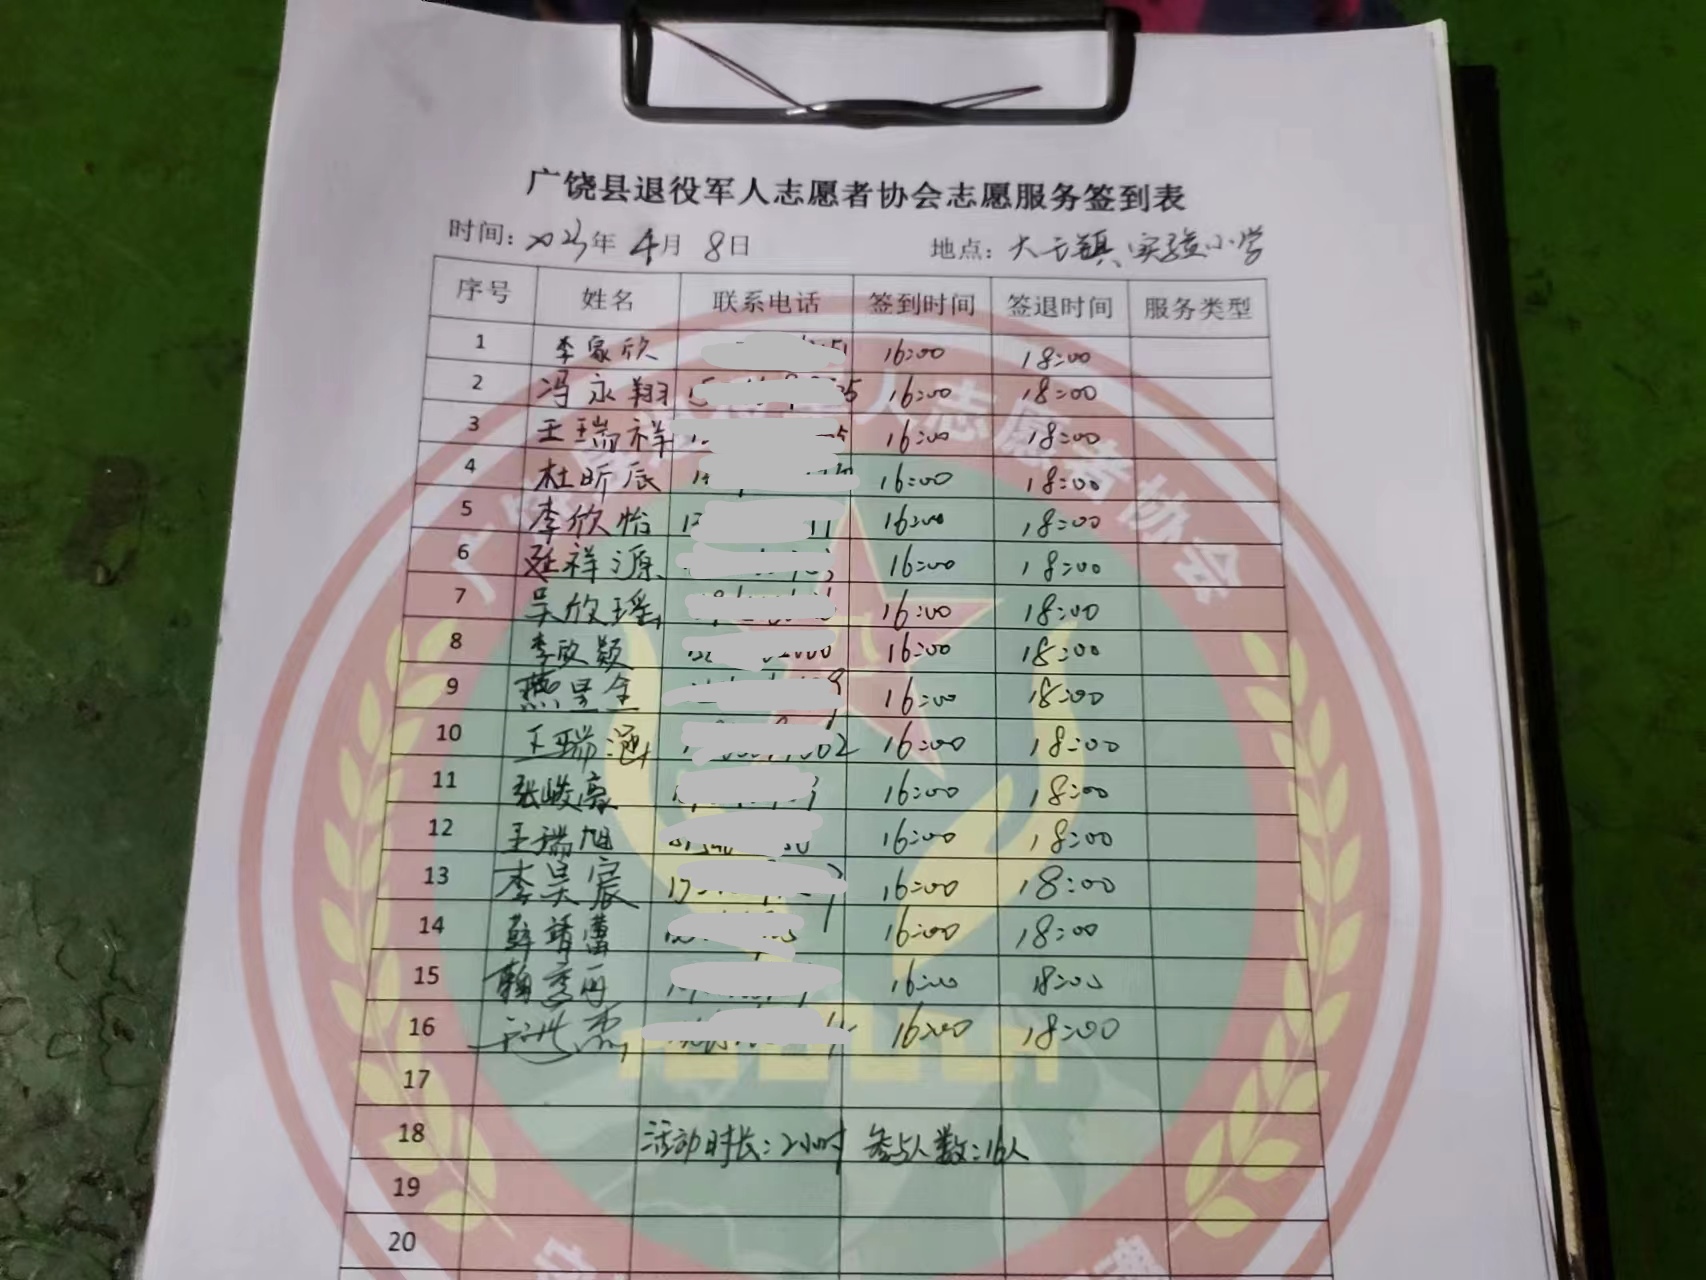 广饶县退役军人志愿者协会志愿服务签到表
时间：2023年 4月 8日 地点：大王镇实验小学
序号 姓名 联系电话 签到时间 签退时间 服务类型
1 李家欣 16:00 18:00
2 冯永翔 16:00 18:00
3 王瑞祥 16:00 18:00
4 杜昕辰 16:00 18:00
5 李欣怡 16:00 18:00
6 延祥源 16:00 18:00
7 吴欣瑶 16:00 18:00
8 李欣颖 16:00 18:00
9 燕昱全 16:00 18:00
10 王瑞涵 16:00 18:00
11 张峻豪 16:00 18:00
12 王瑞旭 16:00 18:00
13 李昊宸 16:00 18:00
14 薛靖蕾 16:00 18:00
15 16:00 18:00
16 16:00 18:00
17
18 活动时长：2小时 参与人数：16人
19
20